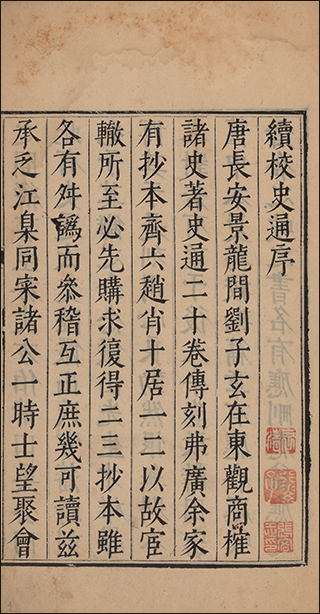 續校史通序
唐長安景龍間劉子玄在東觀商榷
諸史著史通二十卷傳刻弗廣余家
有抄本齊六趙肖十居一二以故宦
轍所至必先購求復得二三抄本雖
各有舛譌而叅稽互正庶幾可讀茲
承乏江臬同寀諸公一時士望聚會